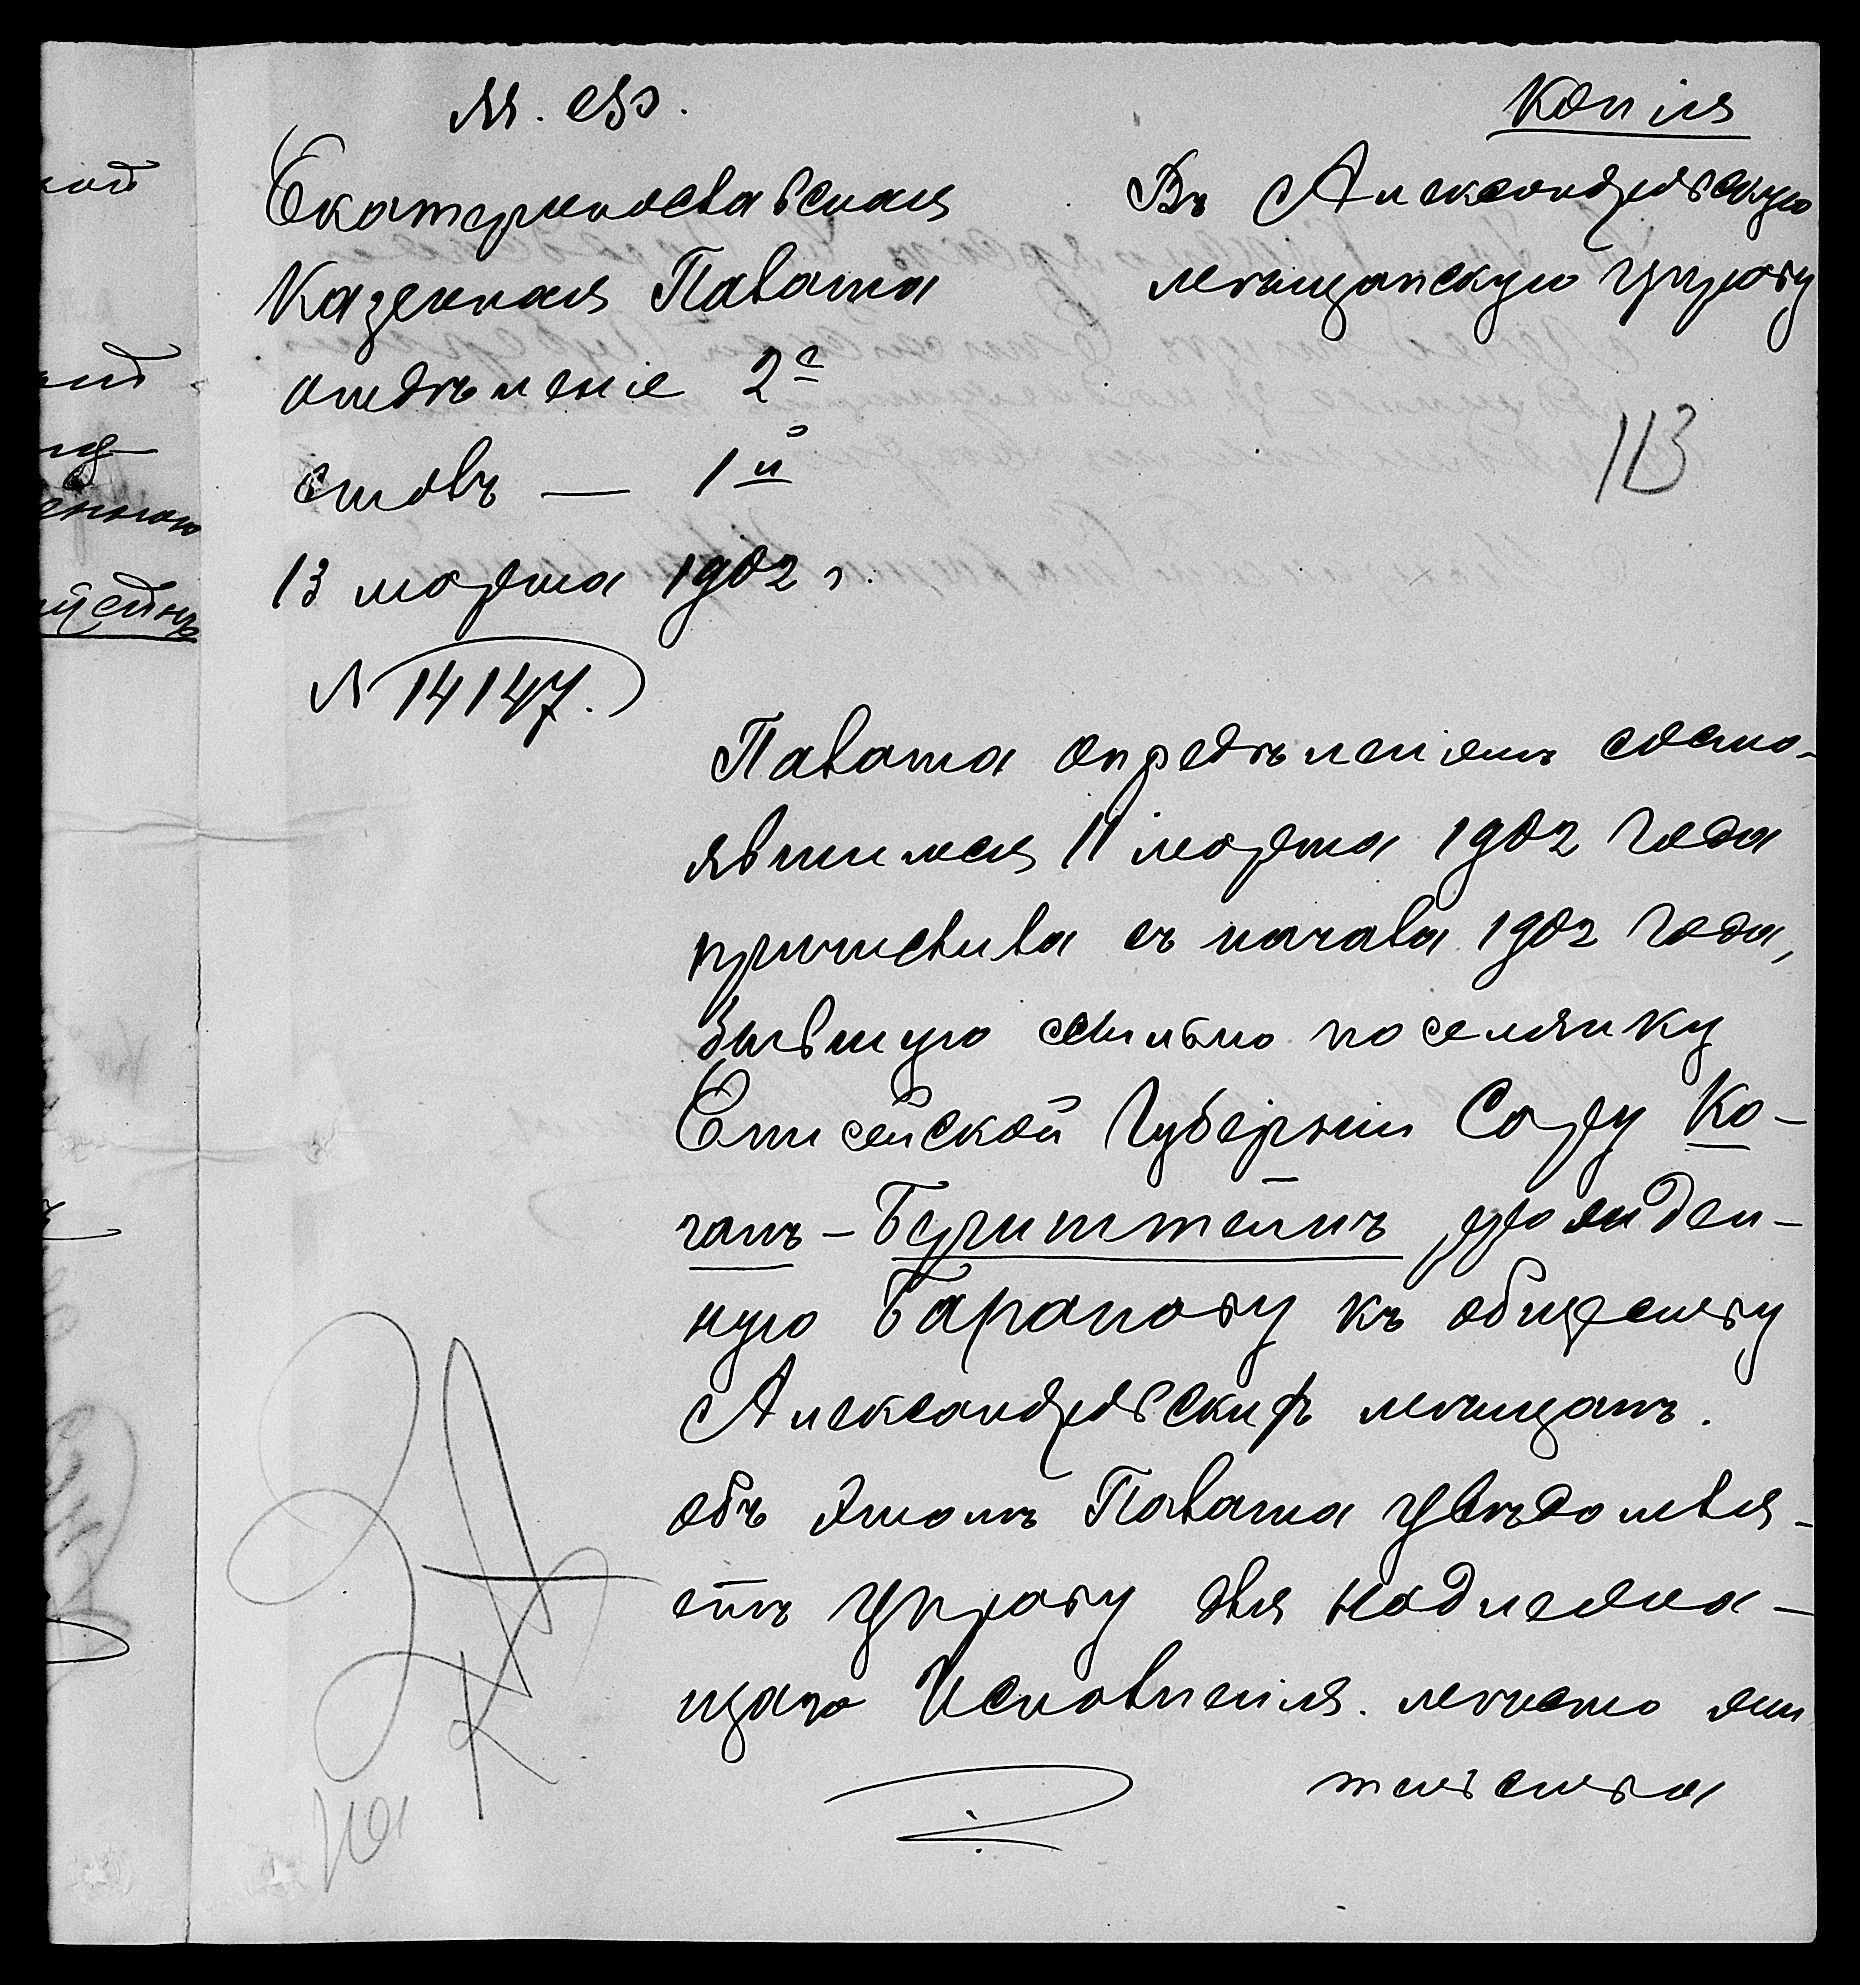 М. Ф.
Копія
Екатеринославская
Казенная Палата
отдѣленіе 2е
столъ — 1й
13 марта 1902 г.
№ 14147.
Въ Александровскую
мѣщанскую Управу
113
Палата опредѣленіемъ состо-
явшимся 11 марта 1902 года
причислила съ начала 1902 года,
бывшую ссыльно поселянку
Енисейской Губерніи Сару Ко-
ганъ-Бернштейнъ рожден-
ную Баранову къ обществу
Александровскихъ мѣщанъ.
Объ этомъ Палата увѣдомля-
етъ Управу для надлежа-
щаго Исполненія. мѣсто жи
тельства